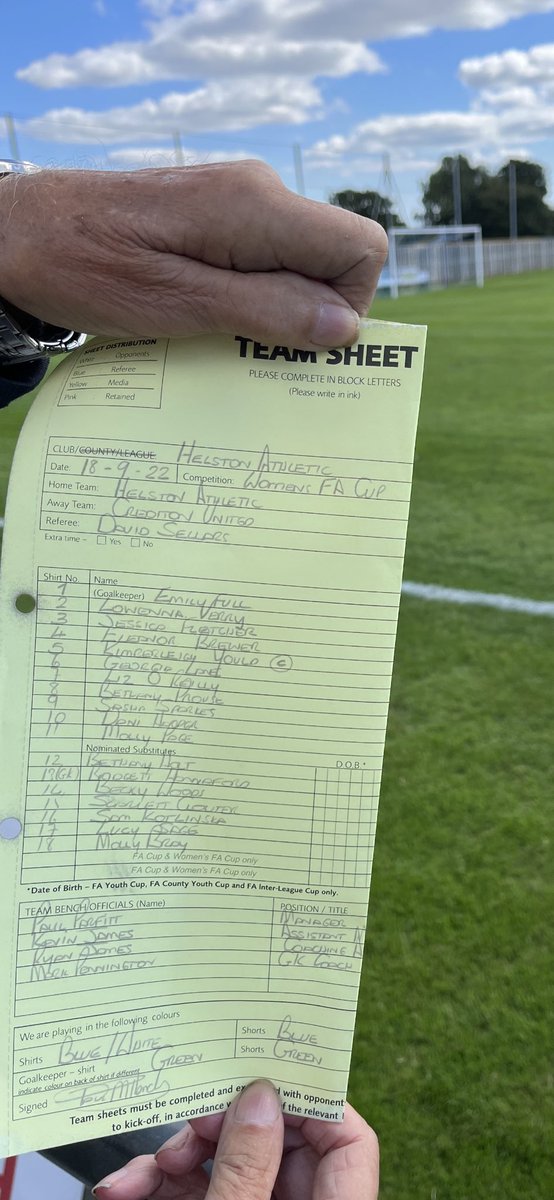 SHEET DISTRIBUTION
White Opponents
Blue : Referee
Yellow Media
Pink : Retained
TEAM SHEET
PLEASE COMPLETE IN BLOCK LETTERS
(Please write in ink)
CLUB/COUNTY/LEAGUE HELSTON ATHLETIC
Date: 18-9-22 Competition: WOMENS FA CUP
Home Team: HELSTON ATHLETIC
Away Team: CREDITON UNITED
Referee: DAVID SELLARS
Extra time – Yes No
Shirt No. Name
1 (Goalkeeper) EMILY FULL
2 LOWENNA VERRY
3 JESSICA FLETCHER
4 ELEANOR BREWER
5 KIMBERLEIGH YOULD C
6 GEORGIE
7 LIZ O REILLY
8 BETHANY PROUSE
9 SASHA SPARKES
10 DANI HARPER
11 MOLLY
Nominated Substitutes D.O.B.*
12 BETHANY HOLT
13(GK)
14 BECKY WOODS
15 SCARLETT
16 SAM
17 LUCY
18 MOLLY BRAY
FA Cup & Women's FA Cup only
FA Cup & Women's FA Cup only
*Date of Birth – FA Youth Cup, FA County Youth Cup and FA Inter-League Cup only.
TEAM BENCH OFFICIALS (Name) POSITION / TITLE
PAUL PARFITT MANAGER
KEVIN JAMES ASSISTANT M
RYAN ADAMS COACHING A
MARK PENNINGTON GK COACH
We are playing in the following colours
Shirts BLUE/WHITE Shorts BLUE
Goalkeeper – shirt GREEN Shorts GREEN
indicate colour on back of shirt if different
Signed
Team sheets must be completed and with opponent
to kick-off, in accordance of the relevant